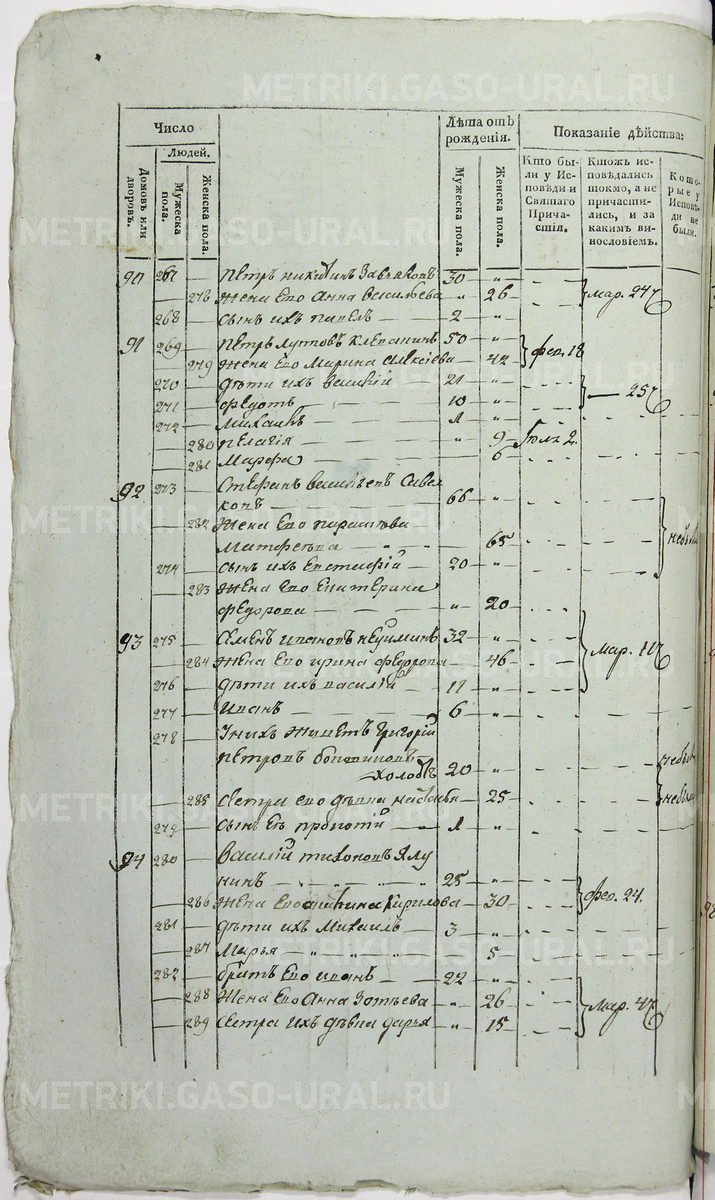 METRIKI.GASO-URAL.RU
Число
Людей.
Домовъ или дворовъ.
Мужеска пола.
Женска пола.
Лѣта отъ рожденія.
Мужеска пола.
Женска пола.
Показаніе дѣйства:
Кто были у Исповѣди и Святаго Причастія.
Ктожъ исповѣдались токмо, а не причастились, и за какимъ винословіемъ.
Которые у Исповѣди не были.
90 267 — Петръ 30 — „
— 278 Жена Его Анна Васильева „ 26 мар. 24
268 — сынъ ихъ Павелъ — 2 — „
91 269 — Петръ 50 — „ фев. 18
— 279 Жена Его Марина Алексіева — „ 42
270 — дѣти ихъ Василій — 21 — „ — 25
271 — Федотъ — 10 — „
272 — Михаилъ — 1 — „
— 280 Пелагія — „ 9
— 281 Марфа — 6
92 273 — Стефанъ Васильевъ
— 66 — „
— 282 Жена Его
Матфеева — „ 65
274 — сынъ ихъ Евстафій — 20 — „
— 283 Жена Его Екатерина
Федорова — „ 20
93 275 — Семенъ Ивановъ Неуйминъ 32 — „
— 284 Жена Его Ирина Федорова — 46 мар. 11
276 — дѣти ихъ Василій — 11 — „
277 — Иванъ — 6 — „
278 — У нихъ живетъ Григорій
Петровъ
холостъ 20 — „
— 285 сестра его дѣвка 25
279 — сынъ Ея 1 — „
94 280 — Василій Тихоновъ Ялу
нинъ „ „ „ 25 — „
— 286 Жена Его Кирилова 30 фев. 24.
281 — дѣти ихъ Михаилъ — 3 — „
— 287 Марья „ „ „ 5
282 — братъ Его Иванъ — 22 — „
— 288 Жена Его Анна Зотѣева „ 26 мар. 4
— 289 сестра ихъ дѣвка Дарья „ 15
METRIKI.GASO-URAL.RU